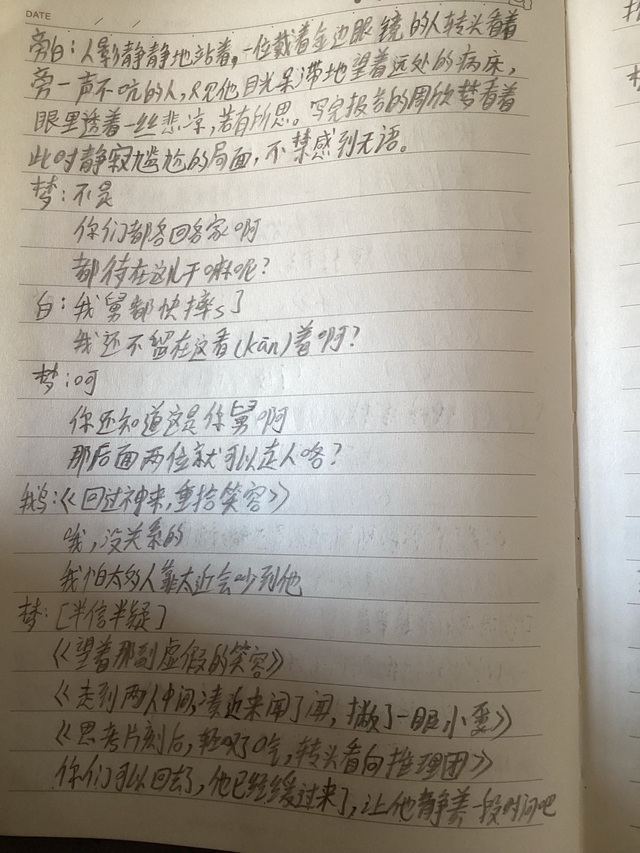 DATE / /
旁白：人影静静地站着，一位戴着金边眼镜的人转头看着
旁一声不吭的人，只见他目光呆滞地望着远处的病床，
眼里透着一丝悲凉，若有所思。写完报告的周欣梦看着
此时静寂尴尬的局面，不禁感到无语。
梦：不是
你们都各回各家啊
都待在这儿干嘛呢？
白：我舅都快摔s了
我还不留在这看(kān)着啊？
梦：呵
你还知道这是你舅啊
那后面两位就可以走人咯？
鹅：《回过神来，重拾笑容》
哦，没关系的
我怕太多人靠太近会吵到他
梦：[半信半疑]
《望着那副虚假的笑容》
《走到两人中间，凑近来闻了闻，撇了一眼小夏》
《思考片刻后，轻叹了口气，转头看向推理团》
你们可以回去了，他已经缓过来了，让他静养一段时间吧